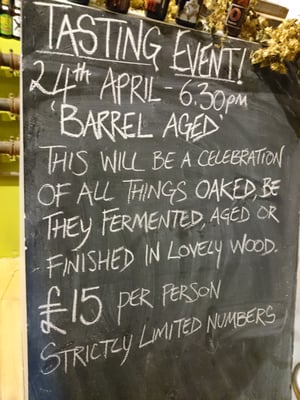 TASTING EVENT!
24th APRIL - 6.30pm
'BARREL AGED'
THIS WILL BE A CELEBRATION
OF ALL THINGS OAKED, BE
THEY FERMENTED AGED OR
FINISHED IN LOVELY WOOD.
£15 PER PERSON
STRICTLY LIMITED NUMBERS